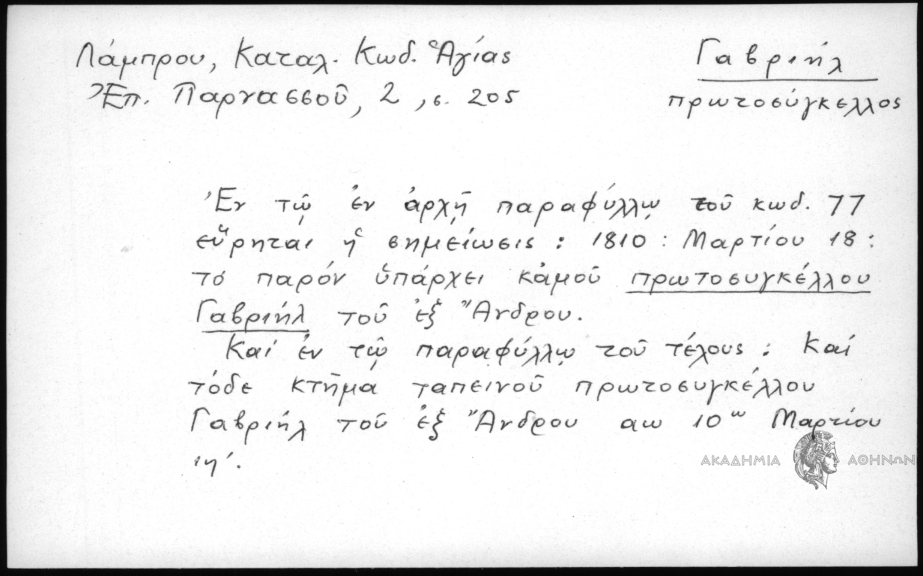 Λάμπρου, Καταλ. Κωδ. Ἁγίας
Ἐπ. Παρνασσοῦ, 2, σ. 205
Γαβριήλ
πρωτοσύγκελλος
Ἐν τῷ ἐν ἀρχῇ παραφύλλῳ τοῦ κωδ. 77
εὕρηται ἡ σημείωσις : 1810 : Μαρτίου 18 :
τὸ παρόν ὑπάρχει κἀμοῦ πρωτοσυγκέλλου
Γαβριήλ τοῦ ἐξ Ἄνδρου.
Καί ἐν τῷ παραφύλλῳ τοῦ τέλους : Καί
τόδε κτῆμα ταπεινοῦ πρωτοσυγκέλλου
Γαβριήλ τοῦ ἐξ Ἄνδρου αω 10ω Μαρτίου
ιη΄.
ΑΚΑΔΗΜΙΑ ΑΘΗΝΩΝ